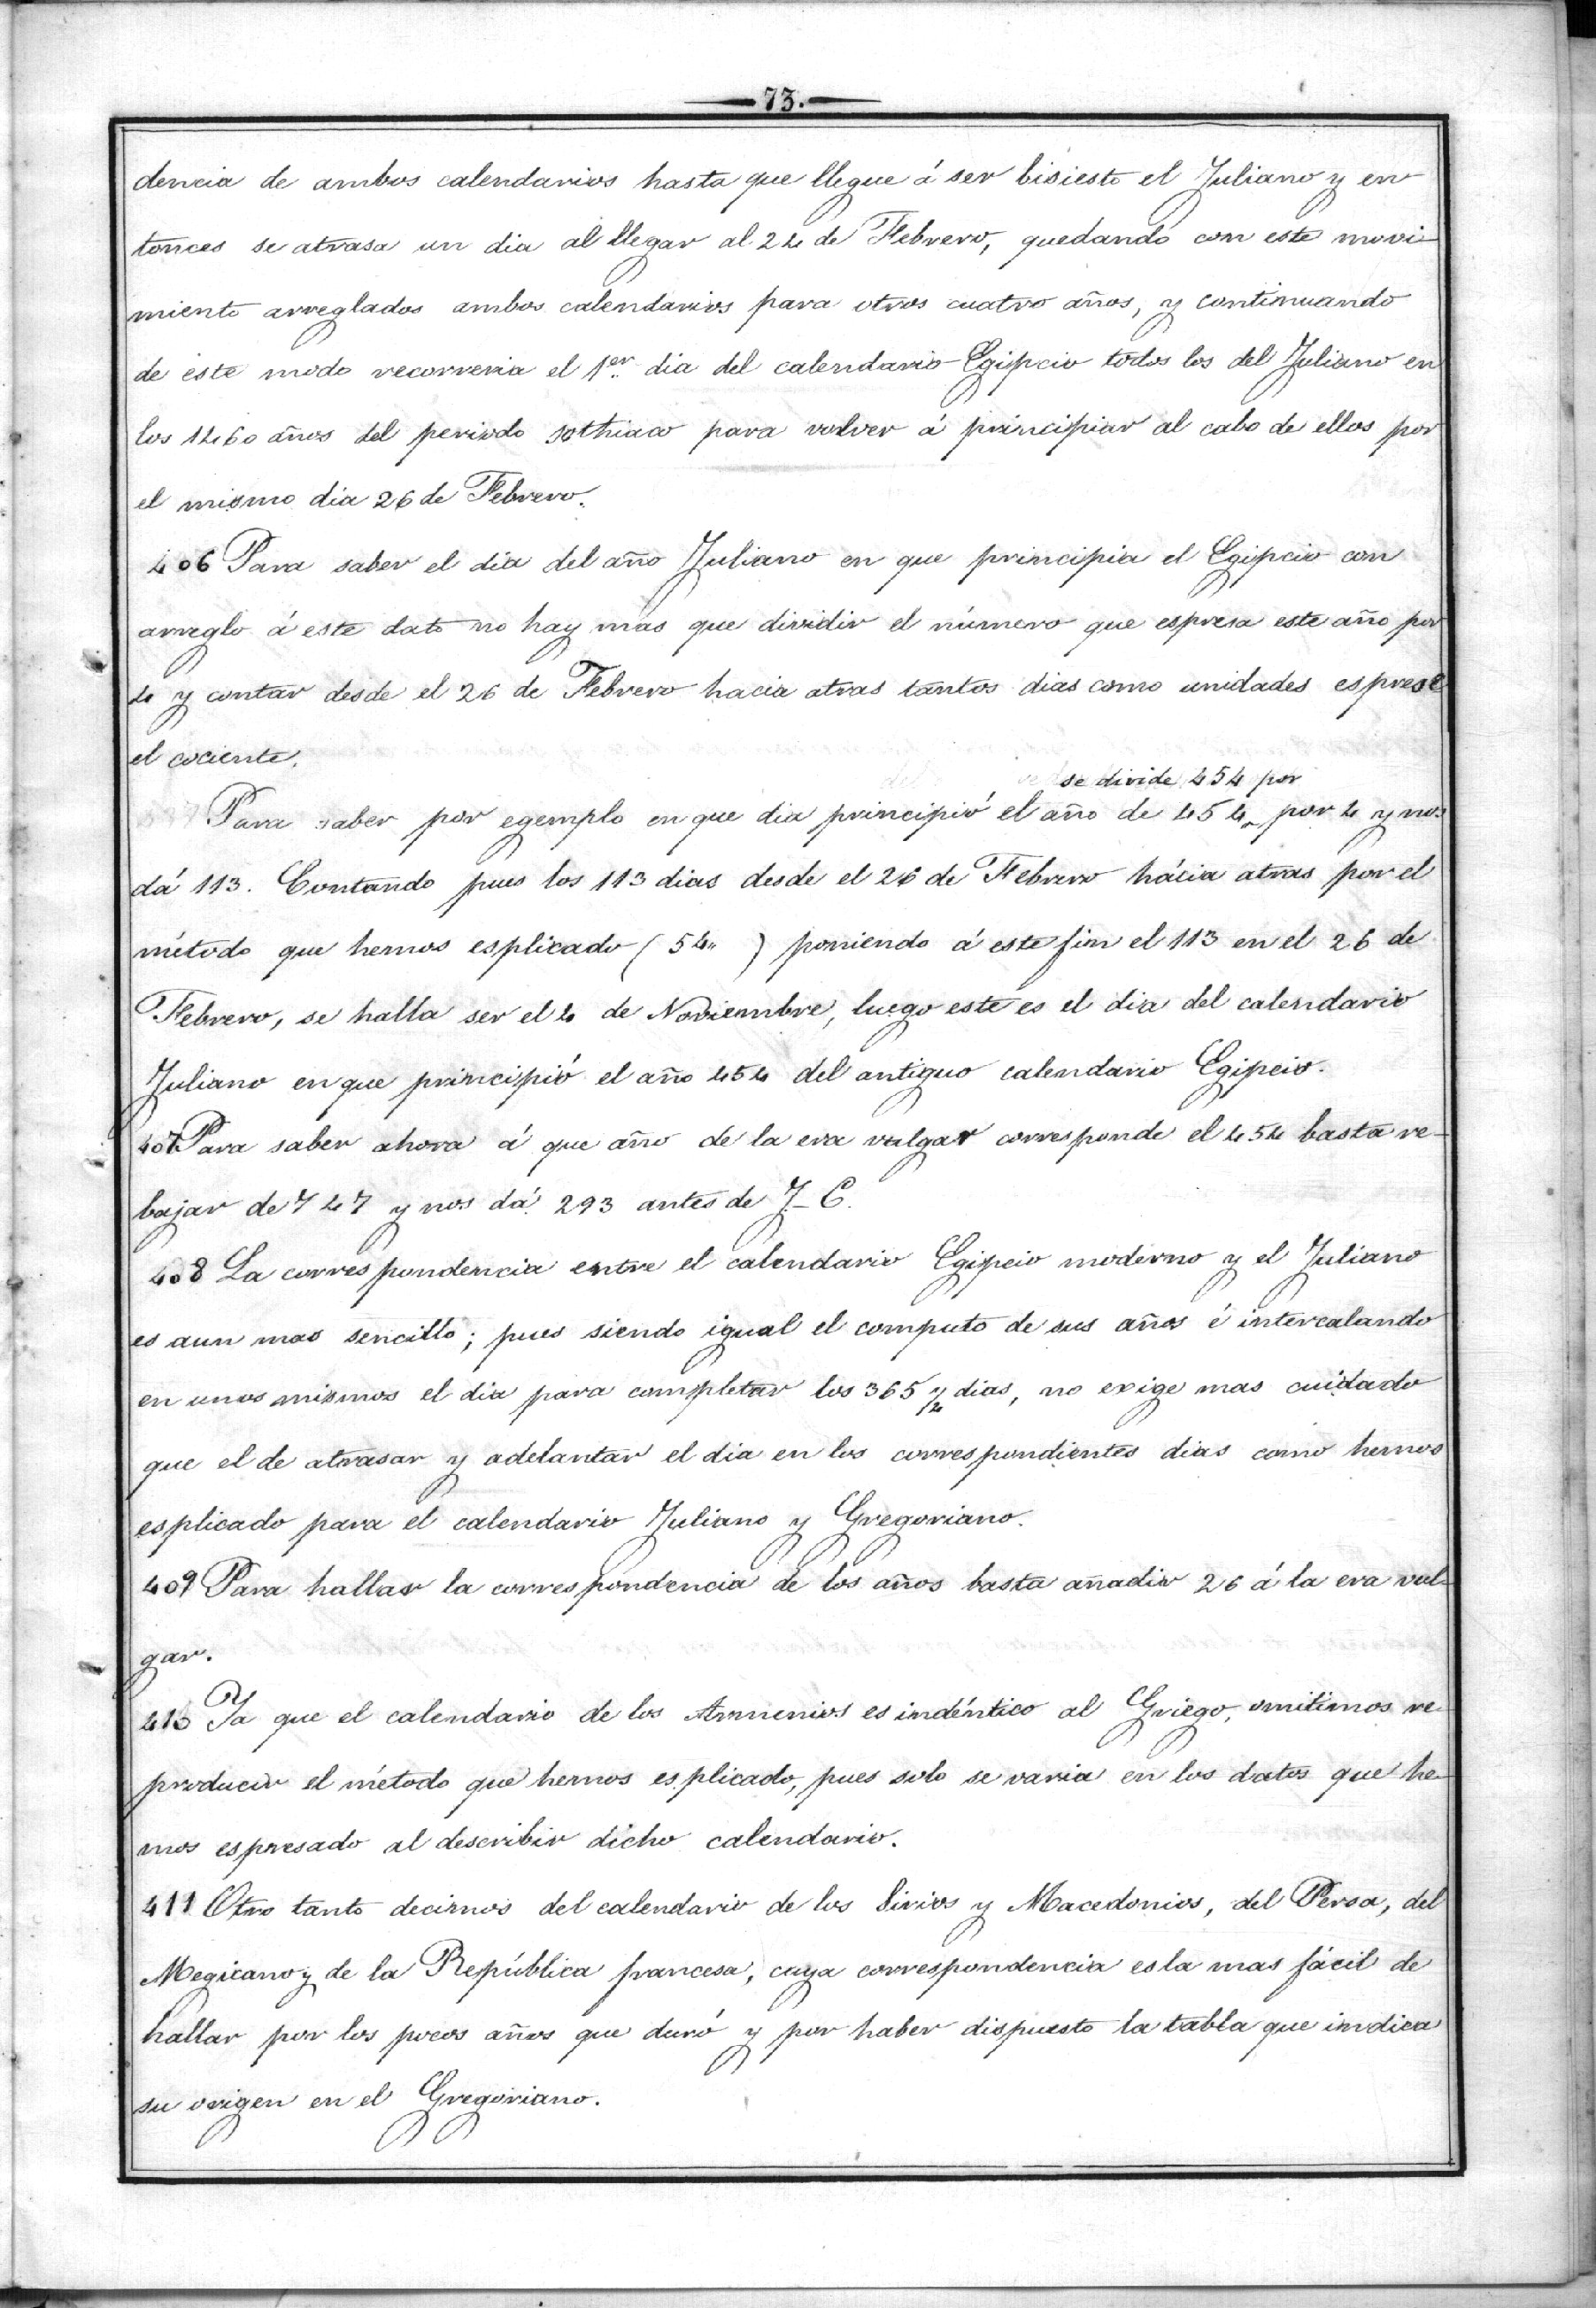 73.
dencia de ambos calendarios hasta que llegue á ser bisiesto el Juliano y en
tonces se atrasa un dia al llegar al 24 de Febrero, quedando con este movi-
miento arreglados ambos calendarios para otros cuatro años, y continuando
de este modo recorreria el 1er. dia del calendario Egipcio todos los del Juliano en
los 1460 años del periodo sothiaco para volver á principiar al cabo de ellos por
el mismo dia 26 de Febrero.
406 Para saber el dia del año Juliano en que principia el Egipcio con
arreglo á este dato no hay mas que dividir el número que espresa este año por
4 y contar desde el 26 de Febrero hacia atras tantos dias como unidades esprese
el cociente.
se divide 454 por
Para saber por egemplo en que dia principió el año de 454 por 4 y nos
dá 113. Contando pues los 113 dias desde el 26 de Febrero hácia atras por el
método que hemos esplicado (54" ) poniendo á este fin el 113 en el 26 de
Febrero, se halla ser el 4 de Noviembre, luego este es el dia del calendario
Juliano en que principió el año 454 del antiguo calendario Egipcio.
407 Para saber ahora á que año de la era vulgar corresponde el 454 basta re-
bajar de 747 y nos dá 293 antes de J-C.
408 La correspondencia entre el calendario Egipcio moderno y el Juliano
es aun mas sencillo; pues siendo igual el computo de sus años é intercalando
en unos mismos el dia para completar los 365 1/4 dias, no exige mas cuidado
que el de atrasar y adelantar el dia en los correspondientes dias como hemos
esplicado para el calendario Juliano y Gregoriano.
409 Para hallar la correspondencia de los años basta añadir 26 á la era vul-
gar.
410 Ya que el calendario de los Armenios es indéntico al Griego, omitimos re-
producir el método que hemos esplicado, pues solo se varia en los datos que he-
mos espresado al describir dicho calendario.
411 Otro tanto decimos del calendario de los Sirios y Macedonios, del Persa, del
Megicano y de la República francesa, cuya correspondencia es la mas fácil de
hallar por los pocos años que duró y por haber dispuesto la tabla que indica
su origen en el Gregoriano.